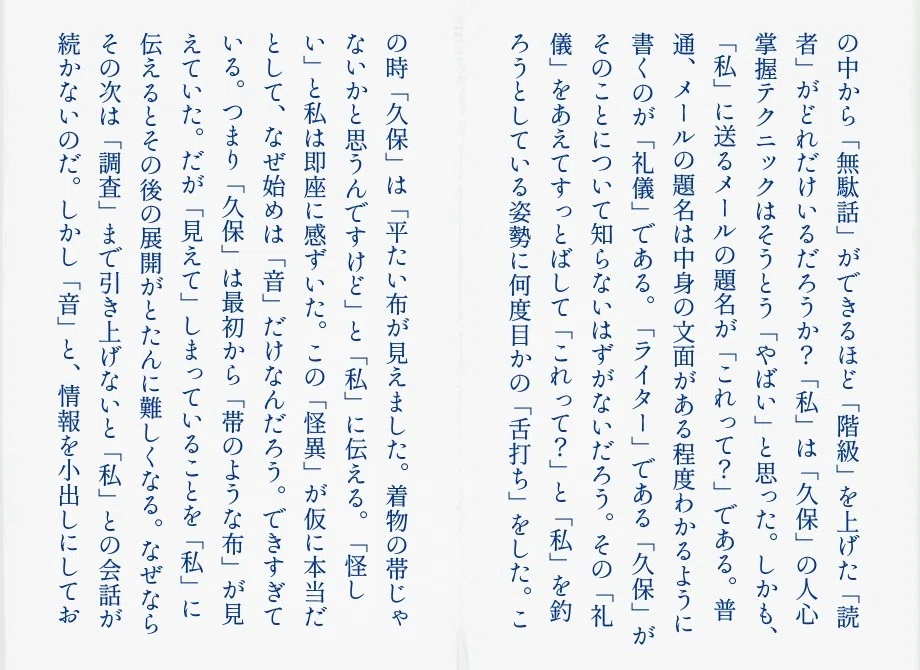 の中から「無駄話」ができるほど「階級」を上げた「読
者」がどれだけいるだろうか？「私」は「久保」の人心
掌握テクニックはそうとう「やばい」と思った。しかも、
「私」に送るメールの題名が「これって？」である。普
通、メールの題名は中身の文面がある程度わかるように
書くのが「礼儀」である。「ライター」である「久保」が
そのことについて知らないはずがないだろう。その「礼
儀」をあえてすっとばして「これって？」と「私」を釣
ろうとしている姿勢に何度目かの「舌打ち」をした。こ
の時「久保」は「平たい布が見えました。着物の帯じゃ
ないかと思うんですけど」と「私」に伝える。「怪し
い」と私は即座に感ずいた。この「怪異」が仮に本当だ
として、なぜ始めは「音」だけなんだろう。できすぎて
いる。つまり「久保」は最初から「帯のような布」が見
えていた。だが「見えて」しまっていることを「私」に
伝えるとその後の展開がとたんに難しくなる。なぜなら
その次は「調査」まで引き上げないと「私」との会話が
続かないのだ。しかし「音」と、情報を小出しにしてお